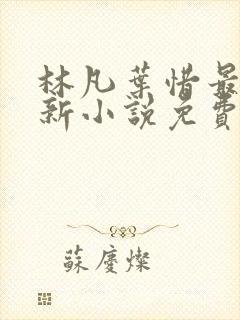 林凡葉惜最
新小說免費
蘇慶燦